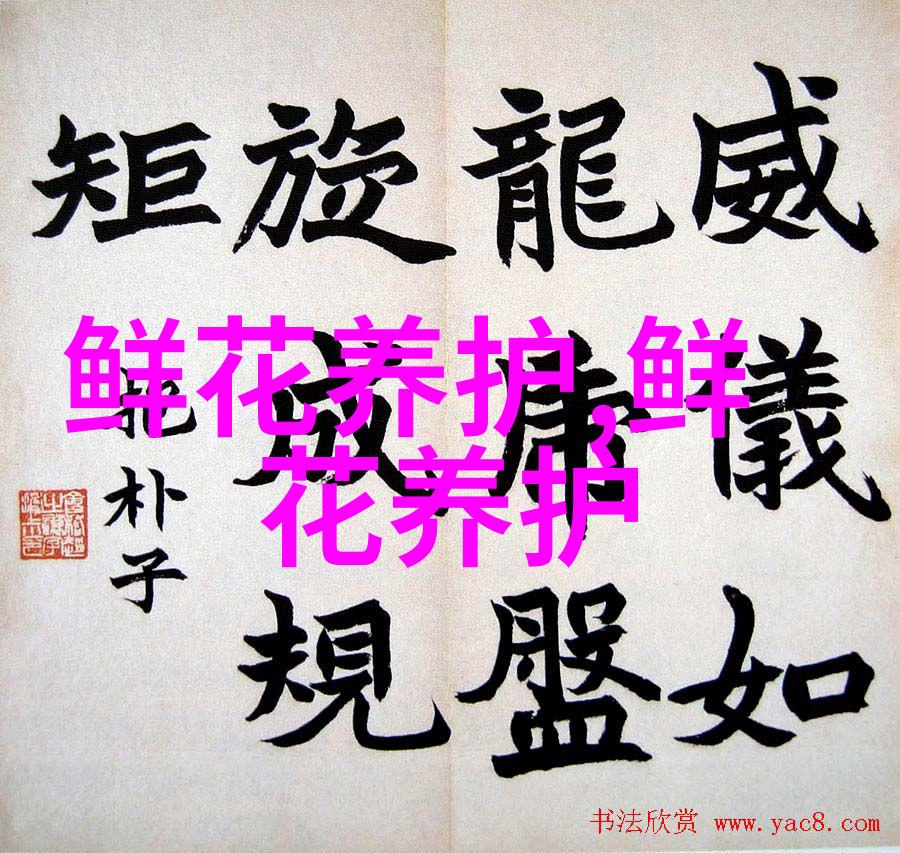 威儀如
龍盤
旋成規
矩
抱朴子
鲜花养护,鲜
花养护
书法欣赏 www.yac8.com